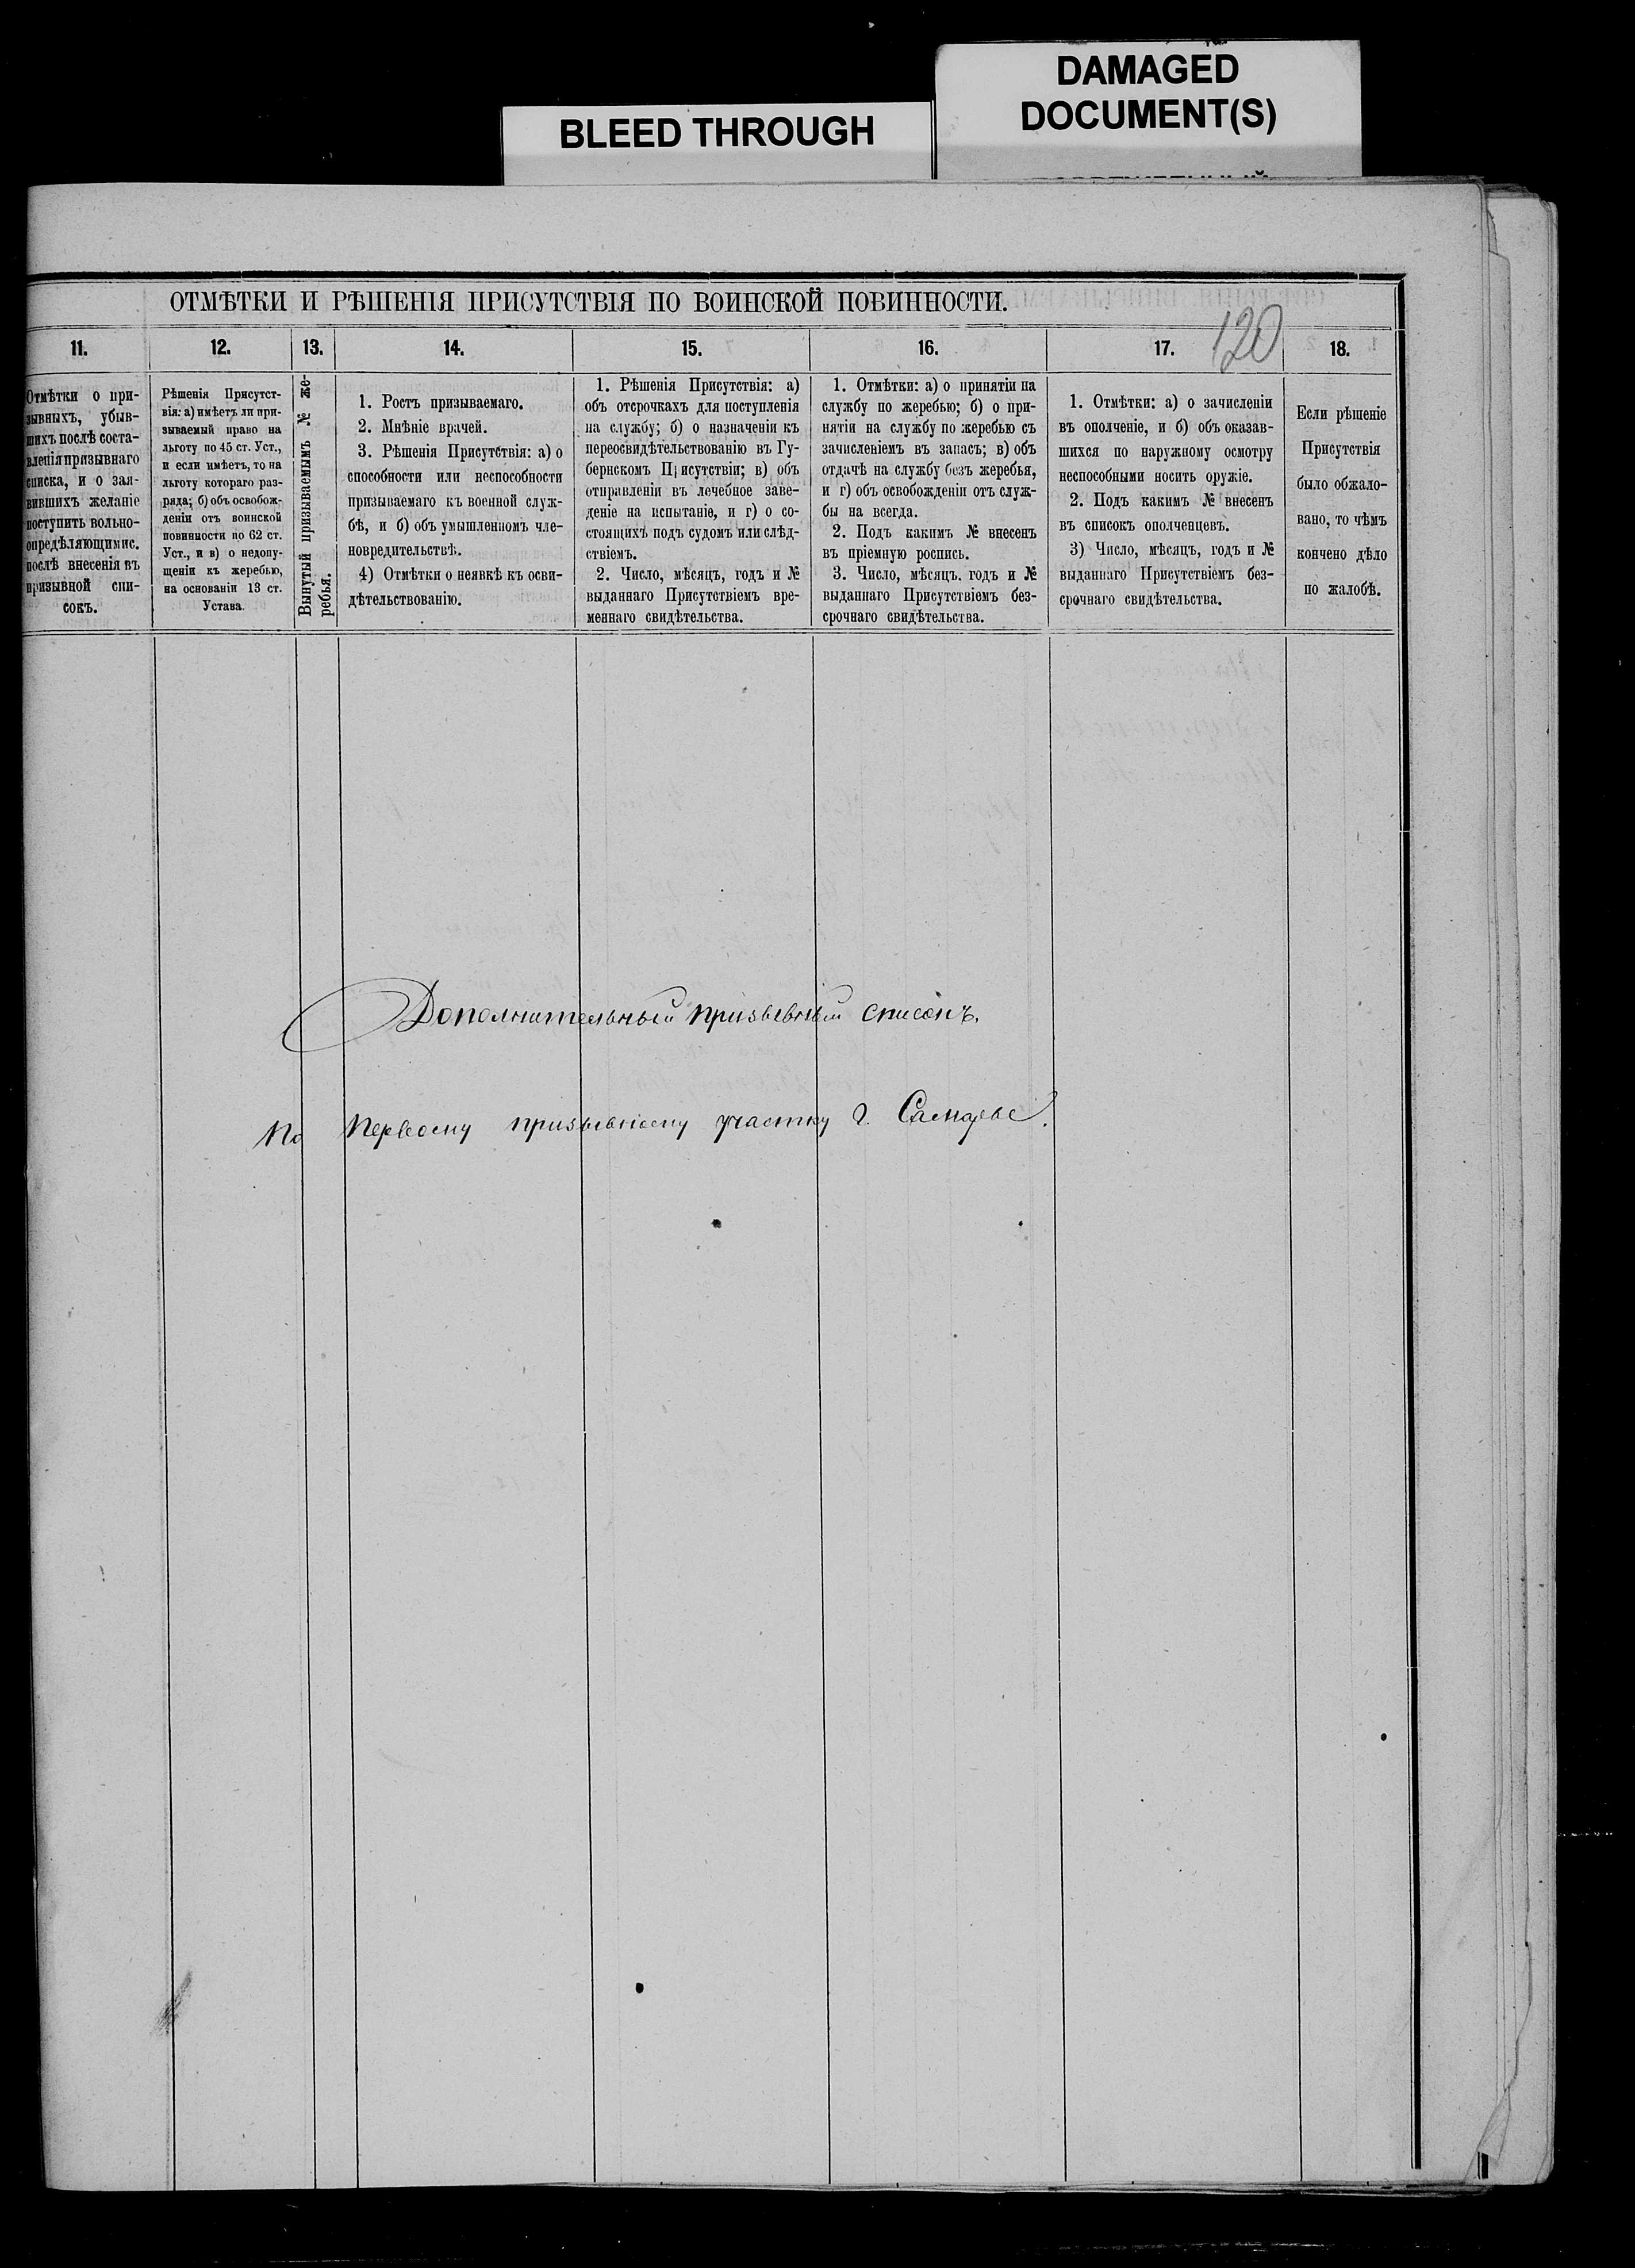 BLEED THROUGH
DAMAGED
DOCUMENT(S)
ОТМѢТКИ И РѢШЕНІЯ ПРИСУТСТВІЯ ПО ВОИНСКОЙ ПОВИННОСТИ.
120
11.
12.
13.
14.
15.
16.
17.
18.
Отмѣтки о при-
зывныхъ, убыв-
шихъ послѣ соста-
вленія призывнаго
списка, и о зая-
вившихъ желаніе
поступить вольно-
опредѣляющимис.
послѣ внесенія въ
призывной спи-
сокъ.
Рѣшенія Присутст-
вія: а) имѣетъ ли при-
зываемый право на
льготу по 45 ст. Уст.,
и если имѣетъ, то на
льготу котораго раз-
ряда; б) объ освобож-
деніи отъ воинской
повинности по 62 ст.
Уст., и в) о недопу-
щеніи къ жеребью,
на основаніи 13 ст.
Устава.
Вынутый призываемымъ № же-
ребья.
1. Ростъ призываемаго.
2. Мнѣніе врачей.
3. Рѣшенія Присутствія: а) о
способности или неспособности
призываемаго къ военной служ-
бѣ, и б) объ умышленномъ чле-
новредительствѣ.
4) Отмѣтки о неявкѣ къ осви-
дѣтельствованію.
1. Рѣшенія Присутствія: а)
объ отсрочкахъ для поступленія
на службу; б) о назначеніи къ
переосвидѣтельствованію въ Гу-
бернскомъ Присутствіи; в) объ
отправленіи въ лечебное заве-
деніе на испытаніе, и г) о со-
стоящихъ подъ судомъ или слѣд-
ствіемъ.
2. Число, мѣсяцъ, годъ и №
выданнаго Присутствіемъ вре-
меннаго свидѣтельства.
1. Отмѣтки: а) о принятіи на
службу по жеребью; б) о при-
нятіи на службу по жеребью съ
зачисленіемъ въ запасъ; в) объ
отдачѣ на службу безъ жеребья,
и г) объ освобожденіи отъ служ-
бы на всегда.
2. Подъ какимъ № внесенъ
въ пріемную роспись.
3. Число, мѣсяцъ, годъ и №
выданнаго Присутствіемъ без-
срочнаго свидѣтельства.
1. Отмѣтки: а) о зачисленіи
въ ополченіе, и б) объ оказав-
шихся по наружному осмотру
неспособными носить оружіе.
2. Подъ какимъ № внесенъ
въ списокъ ополченцевъ.
3) Число, мѣсяцъ, годъ и №
выданнаго Присутствіемъ без-
срочнаго свидѣтельства.
Если рѣшеніе
Присутствія
было обжало-
вано, то чѣмъ
кончено дѣло
по жалобѣ.
Дополнительный призывный списокъ.
По Первому призывному участку г. Самары.